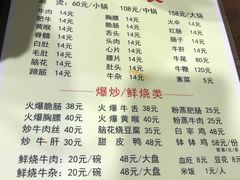 煲: 60元/小锅 108元/中锅 158元/大锅
牛肉 14元 胸膘 14元 火伞 14元
肥牛 14元 脆肠 14元 肚梁 14元
黄喉 14元 舌头 14元 牛肝 14元
脊髓 14元 头肉 14元 牛尾 14元
白肚 14元 心片 14元 牛掌 14元
毛肚 14元 肉筋 14元 牛鞭 120元
脑花 14元 牛杂 14元 素菜 5元
蹄筋 14元
爆炒/鲜烧类
火爆脆肠 38元 火爆牛舌 38元 粉蒸肥肠 25元
火爆胸膘 40元 火爆黄喉 40元 粉蒸牛肉 25元
炒牛肉丝 40元 脑花烧豆腐 35元 白宰鸡 48元
炒牛肝 38元 甜皮鸭 48元 钵钵鸡 58元
鲜烧牛肉: 20元/碗 48元/大盘 血旺 8元 豆花 8元
鲜烧牛杂: 20元/碗 48元/大盘 米饭 1元/人